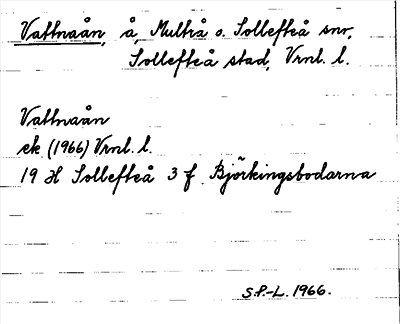 Vattnaån, å, Multrå o. Sollefteå snr,
Sollefteå stad, Vrnl. l.
Vattnaån
ek (1966) Vrnl. l.
19 H Sollefteå 3 f Björkingsbodarna
S.P.-L. 1966.